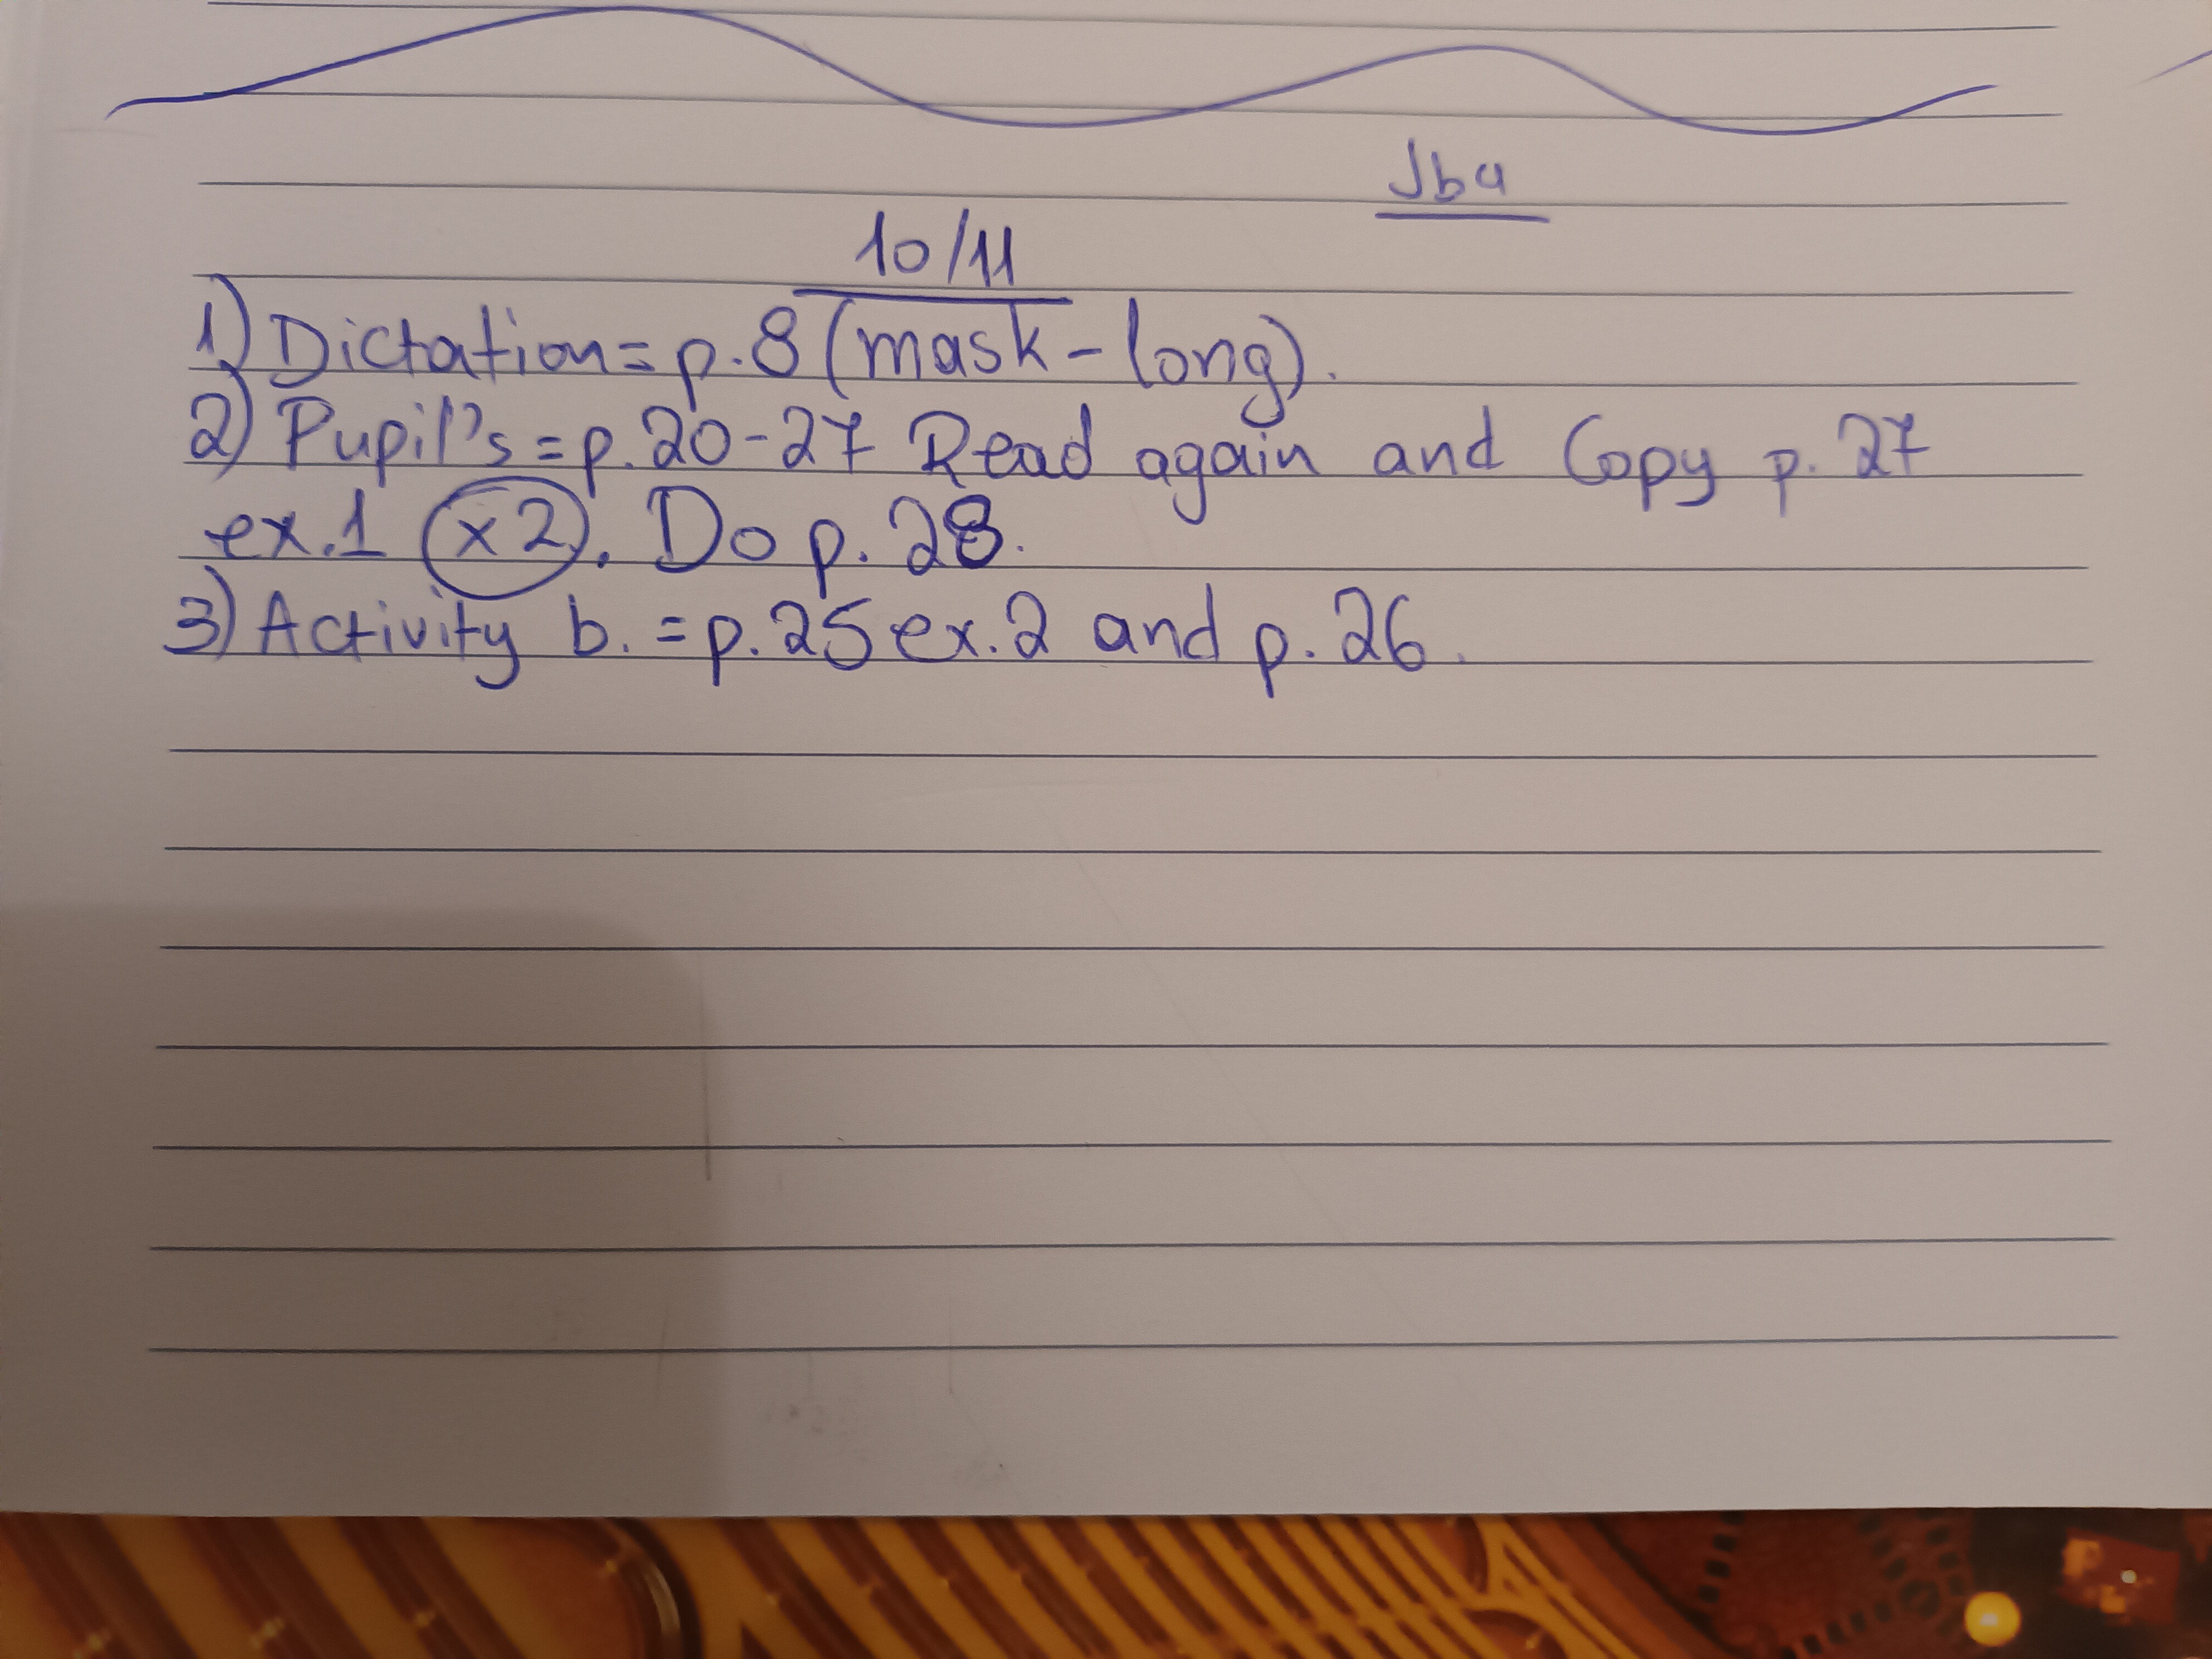 Jba
10/11
1) Dictation = p. 8 (mask - long).
2) Pupil's = p. 20-27 Read again and Copy p. 27
ex. 1 (x2). Do p. 28.
3) Activity b. = p. 25 ex. 2 and p. 26.